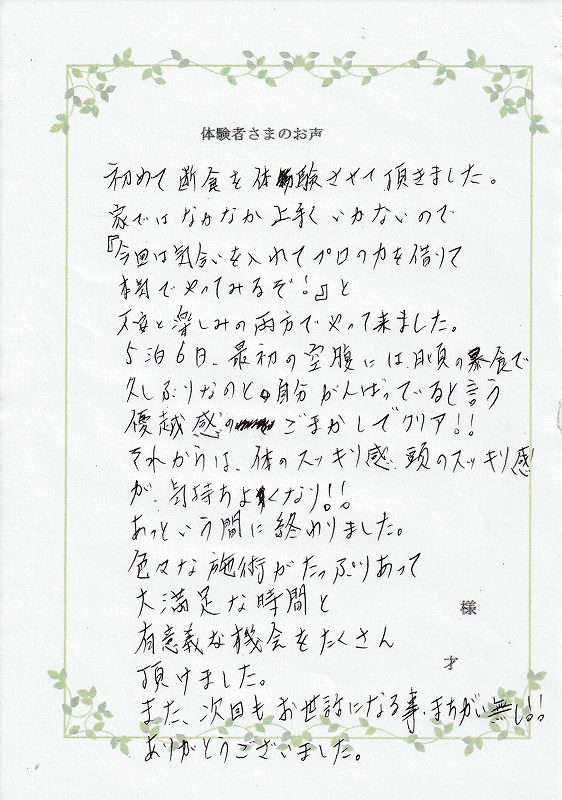 体験者さまのお声
初めて断食を体験させて頂きました。
家ではなかなか上手くいかないので
『今回は気合いを入れてプロの力を借りて
本気でやってみるぞ!』と
不安と楽しみの両方でやって来ました。
5泊6日、最初の空腹には日頃の暴食で
久しぶりなのと自分がんばっていると言う
優越感の ごまかしでクリア!!
それからは、体のスッキリ感、頭のスッキリ感
が、気持ちよくなり!!
あっという間に終わりました。
色々な施術がたっぷりあって
大満足な時間と
有意義な機会をたくさん
頂けました。
また、次回もお世話になる事、まちがい無し!!
ありがとうございました。
様
才